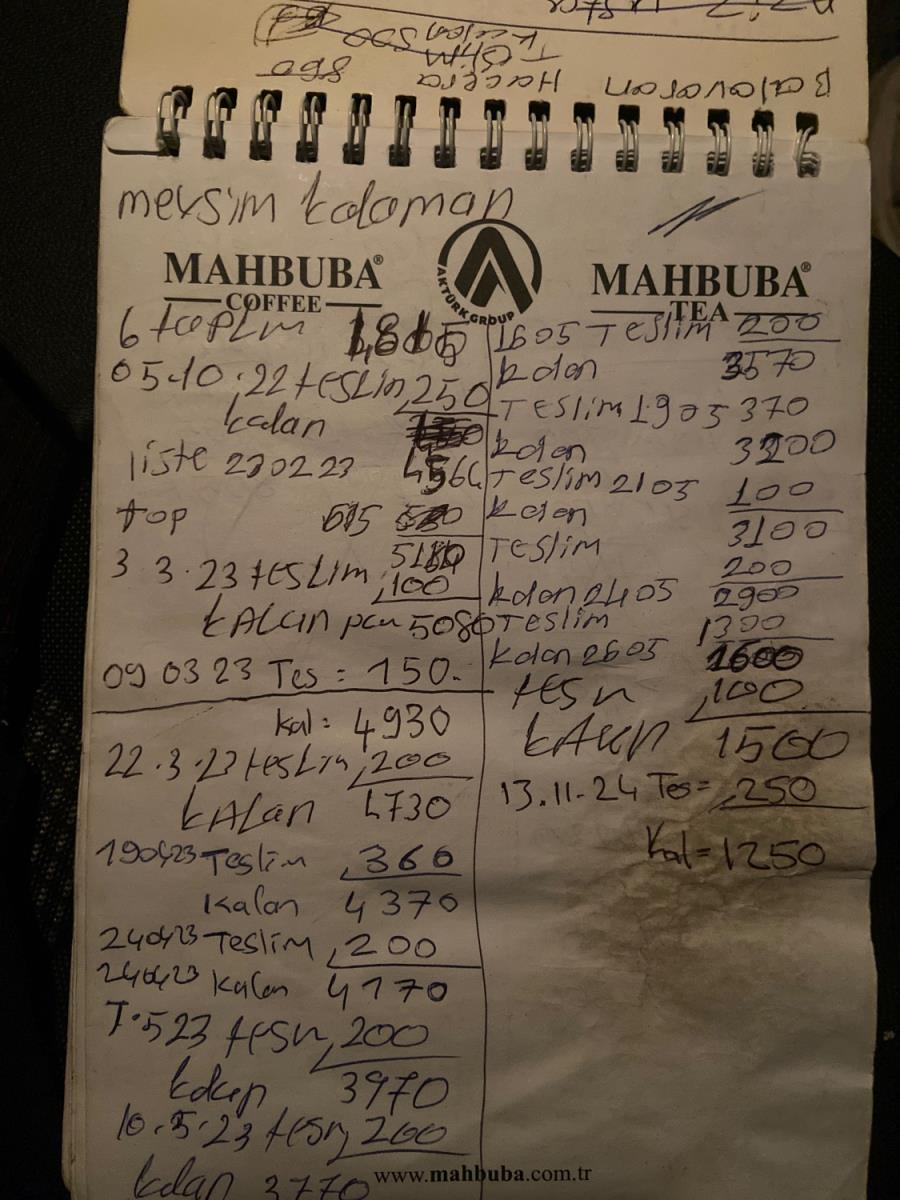 Balavaran Hacera 860
Teslim
Kalan 500
mevsim kalaman
MAHBUBA® COFFEE
AKTÜRK GROUP
MAHBUBA® TEA
6 toplm
05.10.22 teslim 250
kalan
liste 230223
top 615
3.3.23 teslim 100
kALan 5080
09 03 23 Tes = 150.
kal = 4930
22.3.23 teslim 200
kALan 4730
190423 Teslim 360
Kalan 4370
240423 Teslim 200
240423 Kalan 4170
7.5 23 tesn 200
kalan 3970
10.5.23 tesn 200
kalan 3770
1605 Teslim 200
kalan 3570
Teslim 1905 370
kalan 3200
Teslim 2105 100
kalan 3100
Teslim 200
kalan 2405 2900
Teslim 1300
kalan 2605 1600
tesn 100
kALan 1500
13.11.24 Tes= 250
Kal=1250
www.mahbuba.com.tr